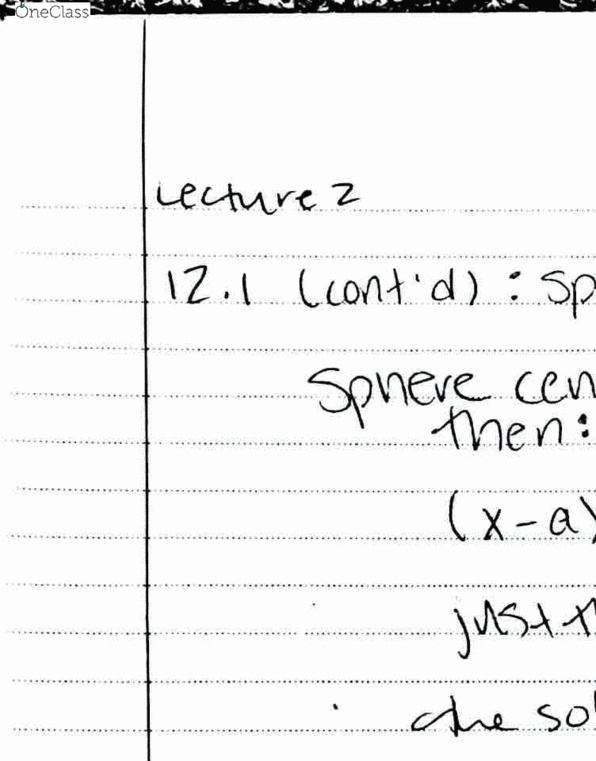 OneClass
Lecture 2
12.1 (cont'd) : Sp
Sphere cen
then:
(x-a)
just th
the sol